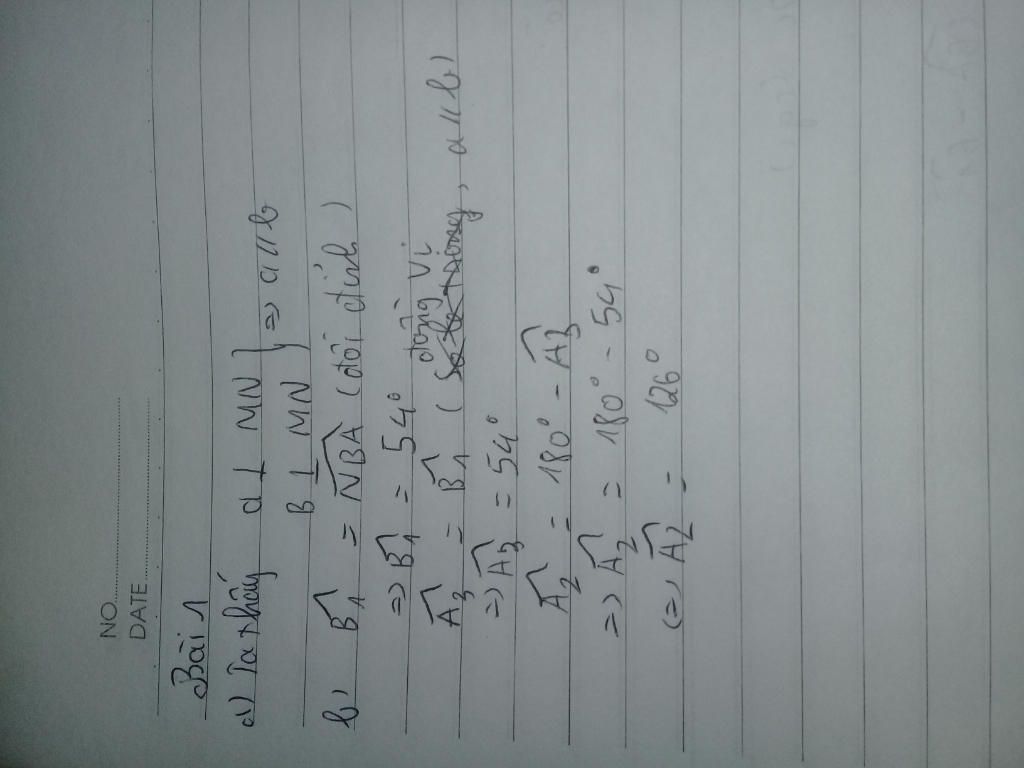 NO.
DATE
Bài 1
a) Ta thấy a ⊥ MN } => a // b
B ⊥ MN
b, B̂1 = N̂BA (đối đỉnh)
=> B̂1 = 54°
Â3 = B̂1 (đồng vị, a // b)
=> Â3 = 54°
Â2 = 180° - Â3
=> Â2 = 180° - 54°
(=) Â2 = 126°